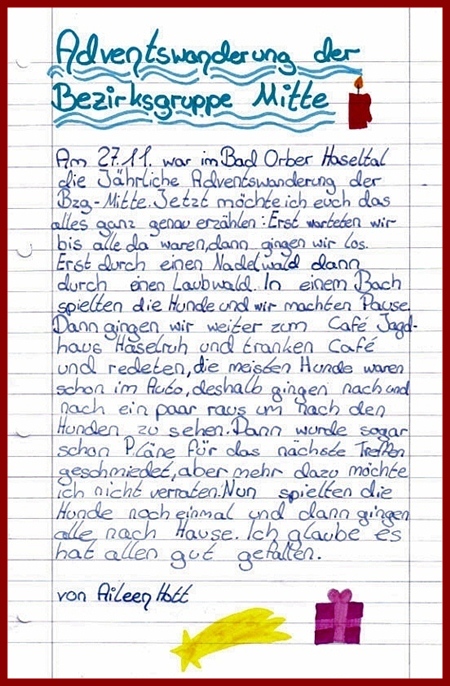 Adventswanderung der
Bezirksgruppe Mitte
Am 27.11. war im Bad Orber Haseltal
die Jährliche Adventswanderung der
Bzg-Mitte. Jetzt möchte ich euch das
alles ganz genau erzählen: Erst warteten wir
bis alle da waren, dann gingen wir los.
Erst durch einen Nadelwald dann
durch einen Laubwald. In einem Bach
spielten die Hunde und wir machten Pause.
Dann gingen wir weiter zum Café Jagd-
haus Haselruh und tranken Café
und redeten, die meisten Hunde waren
schon im Auto, deshalb gingen nach und
nach ein paar raus um nach den
Hunden zu sehen. Dann wurde sogar
schon Pläne für das nächste Treffen
geschmiedet, aber mehr dazu möchte
ich nicht verraten. Nun spielten die
Hunde noch einmal und dann gingen
alle nach Hause. Ich glaube es
hat allen gut gefallen.
von Aileen Hott